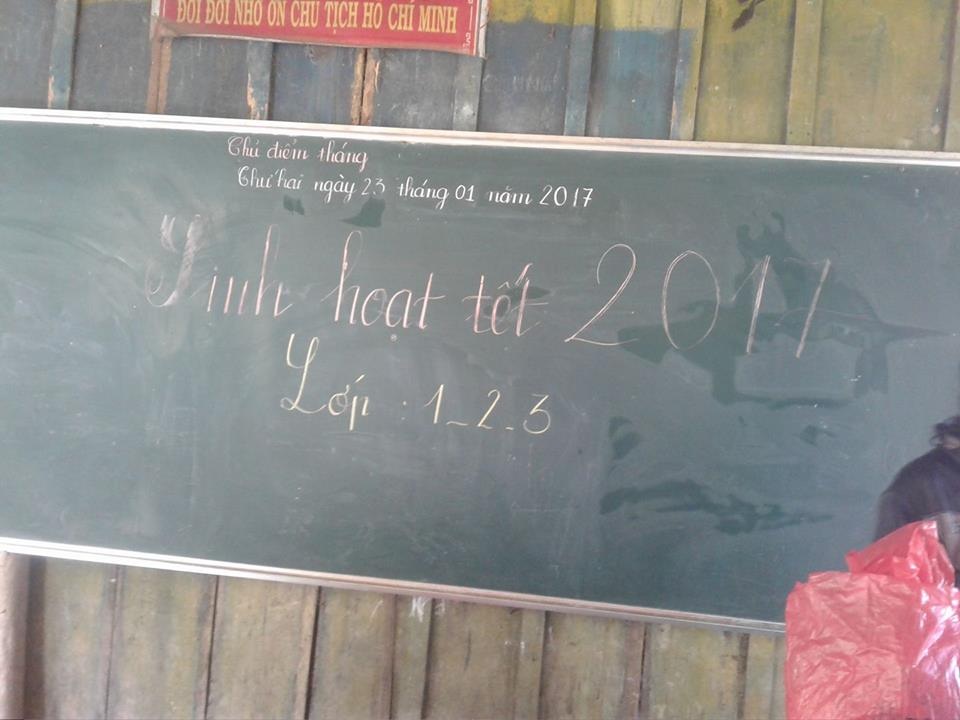 ĐỜI ĐỜI NHỚ ƠN CHỦ TỊCH HỒ CHÍ MINH
Chủ điểm tháng
Thứ hai ngày 23 tháng 01 năm 2017
Sinh hoạt tết 2017
Lớp : 1_2_3